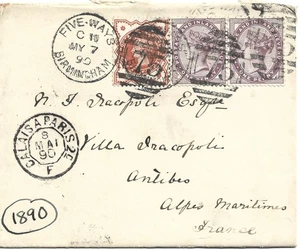 FIVE-WAYS
C
MY 7
90
BIRMINGHAM
75
Villa Tracopoli
Antibes
Alpes Maritimes
France
CALAIS A PARIS 2C
8
MAI
90
F
1890